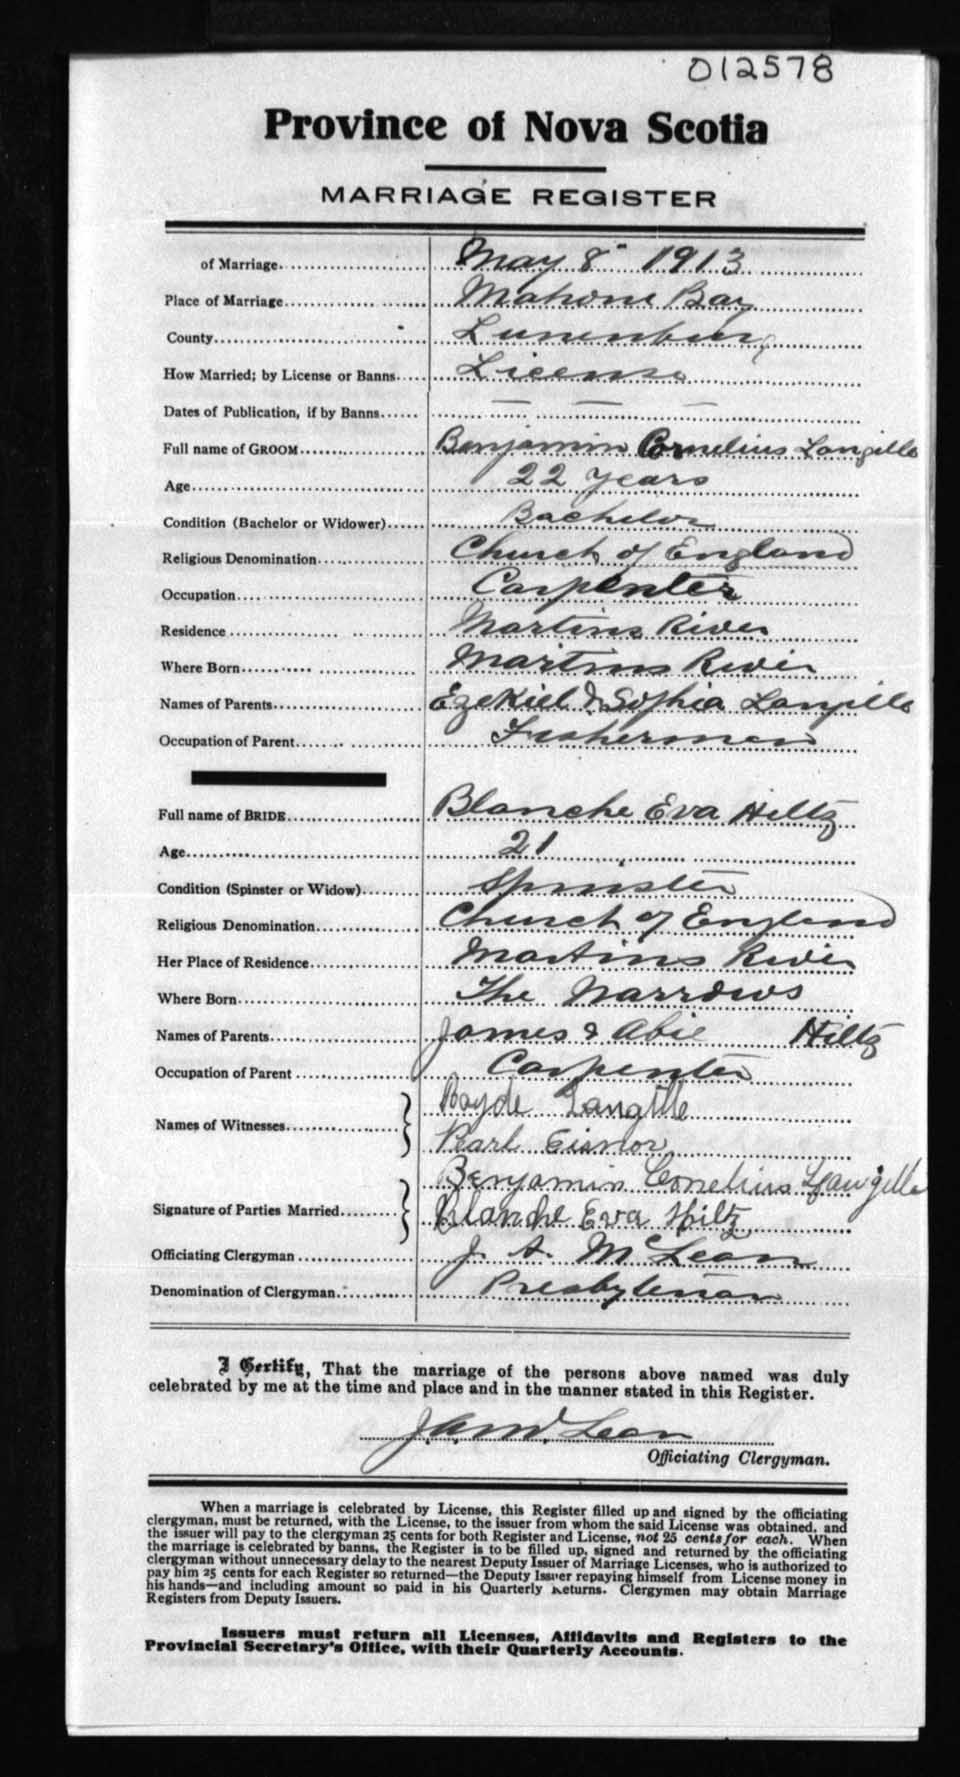 012578
Province of Nova Scotia
MARRIAGE REGISTER
of Marriage May 8" 1913
Place of Marriage Mahone Bay
County Lunenburg
How Married; by License or Banns License
Dates of Publication, if by Banns — — —
Full name of GROOM Benjamin Cornelius Langille
Age 22 years
Condition (Bachelor or Widower) Bachelor
Religious Denomination Church of England
Occupation Carpenter
Residence Martins River
Where Born Martins River
Names of Parents Ezekiel & Sophia Langille
Occupation of Parent Fisherman
Full name of BRIDE Blanche Eva Hiltz
Age 21
Condition (Spinster or Widow) Spinster
Religious Denomination Church of England
Her Place of Residence Martins River
Where Born The Narrows
Names of Parents James & Abie Hiltz
Occupation of Parent Carpenter
Names of Witnesses Boyde Langille
Pearl Eisnor
Signature of Parties Married Benjamin Cornelius Langille
Blanche Eva Hiltz
Officiating Clergyman J. A. McLean
Denomination of Clergyman Presbyterian
I Certify, That the marriage of the persons above named was duly
celebrated by me at the time and place and in the manner stated in this Register.
J. A. McLean
Officiating Clergyman.
When a marriage is celebrated by License, this Register filled up and signed by the officiating
clergyman, must be returned, with the License, to the issuer from whom the said License was obtained, and
the issuer will pay to the clergyman 25 cents for both Register and License, not 25 cents for each. When
the marriage is celebrated by banns, the Register is to be filled up, signed and returned by the officiating
clergyman without unnecessary delay to the nearest Deputy Issuer of Marriage Licenses, who is authorized to
pay him 25 cents for each Register so returned—the Deputy Issuer repaying himself from License money in
his hands—and including amount so paid in his Quarterly Returns. Clergymen may obtain Marriage
Registers from Deputy Issuers.
Issuers must return all Licenses, Affidavits and Registers to the
Provincial Secretary's Office, with their Quarterly Accounts.